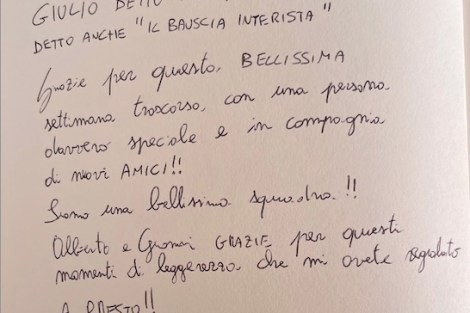 GIULIO DETTO
DETTO ANCHE "IL BAUSCIA INTERISTA"
Grazie per questa BELLISSIMA
settimana trascorsa, con una persona
davvero speciale e in compagnia
di nuovi AMICI!!
Siamo una bellissima squadra!!
Alberto e Giovanni GRAZIE per questi
momenti di leggerezza che mi avete regalato
A PRESTO!!